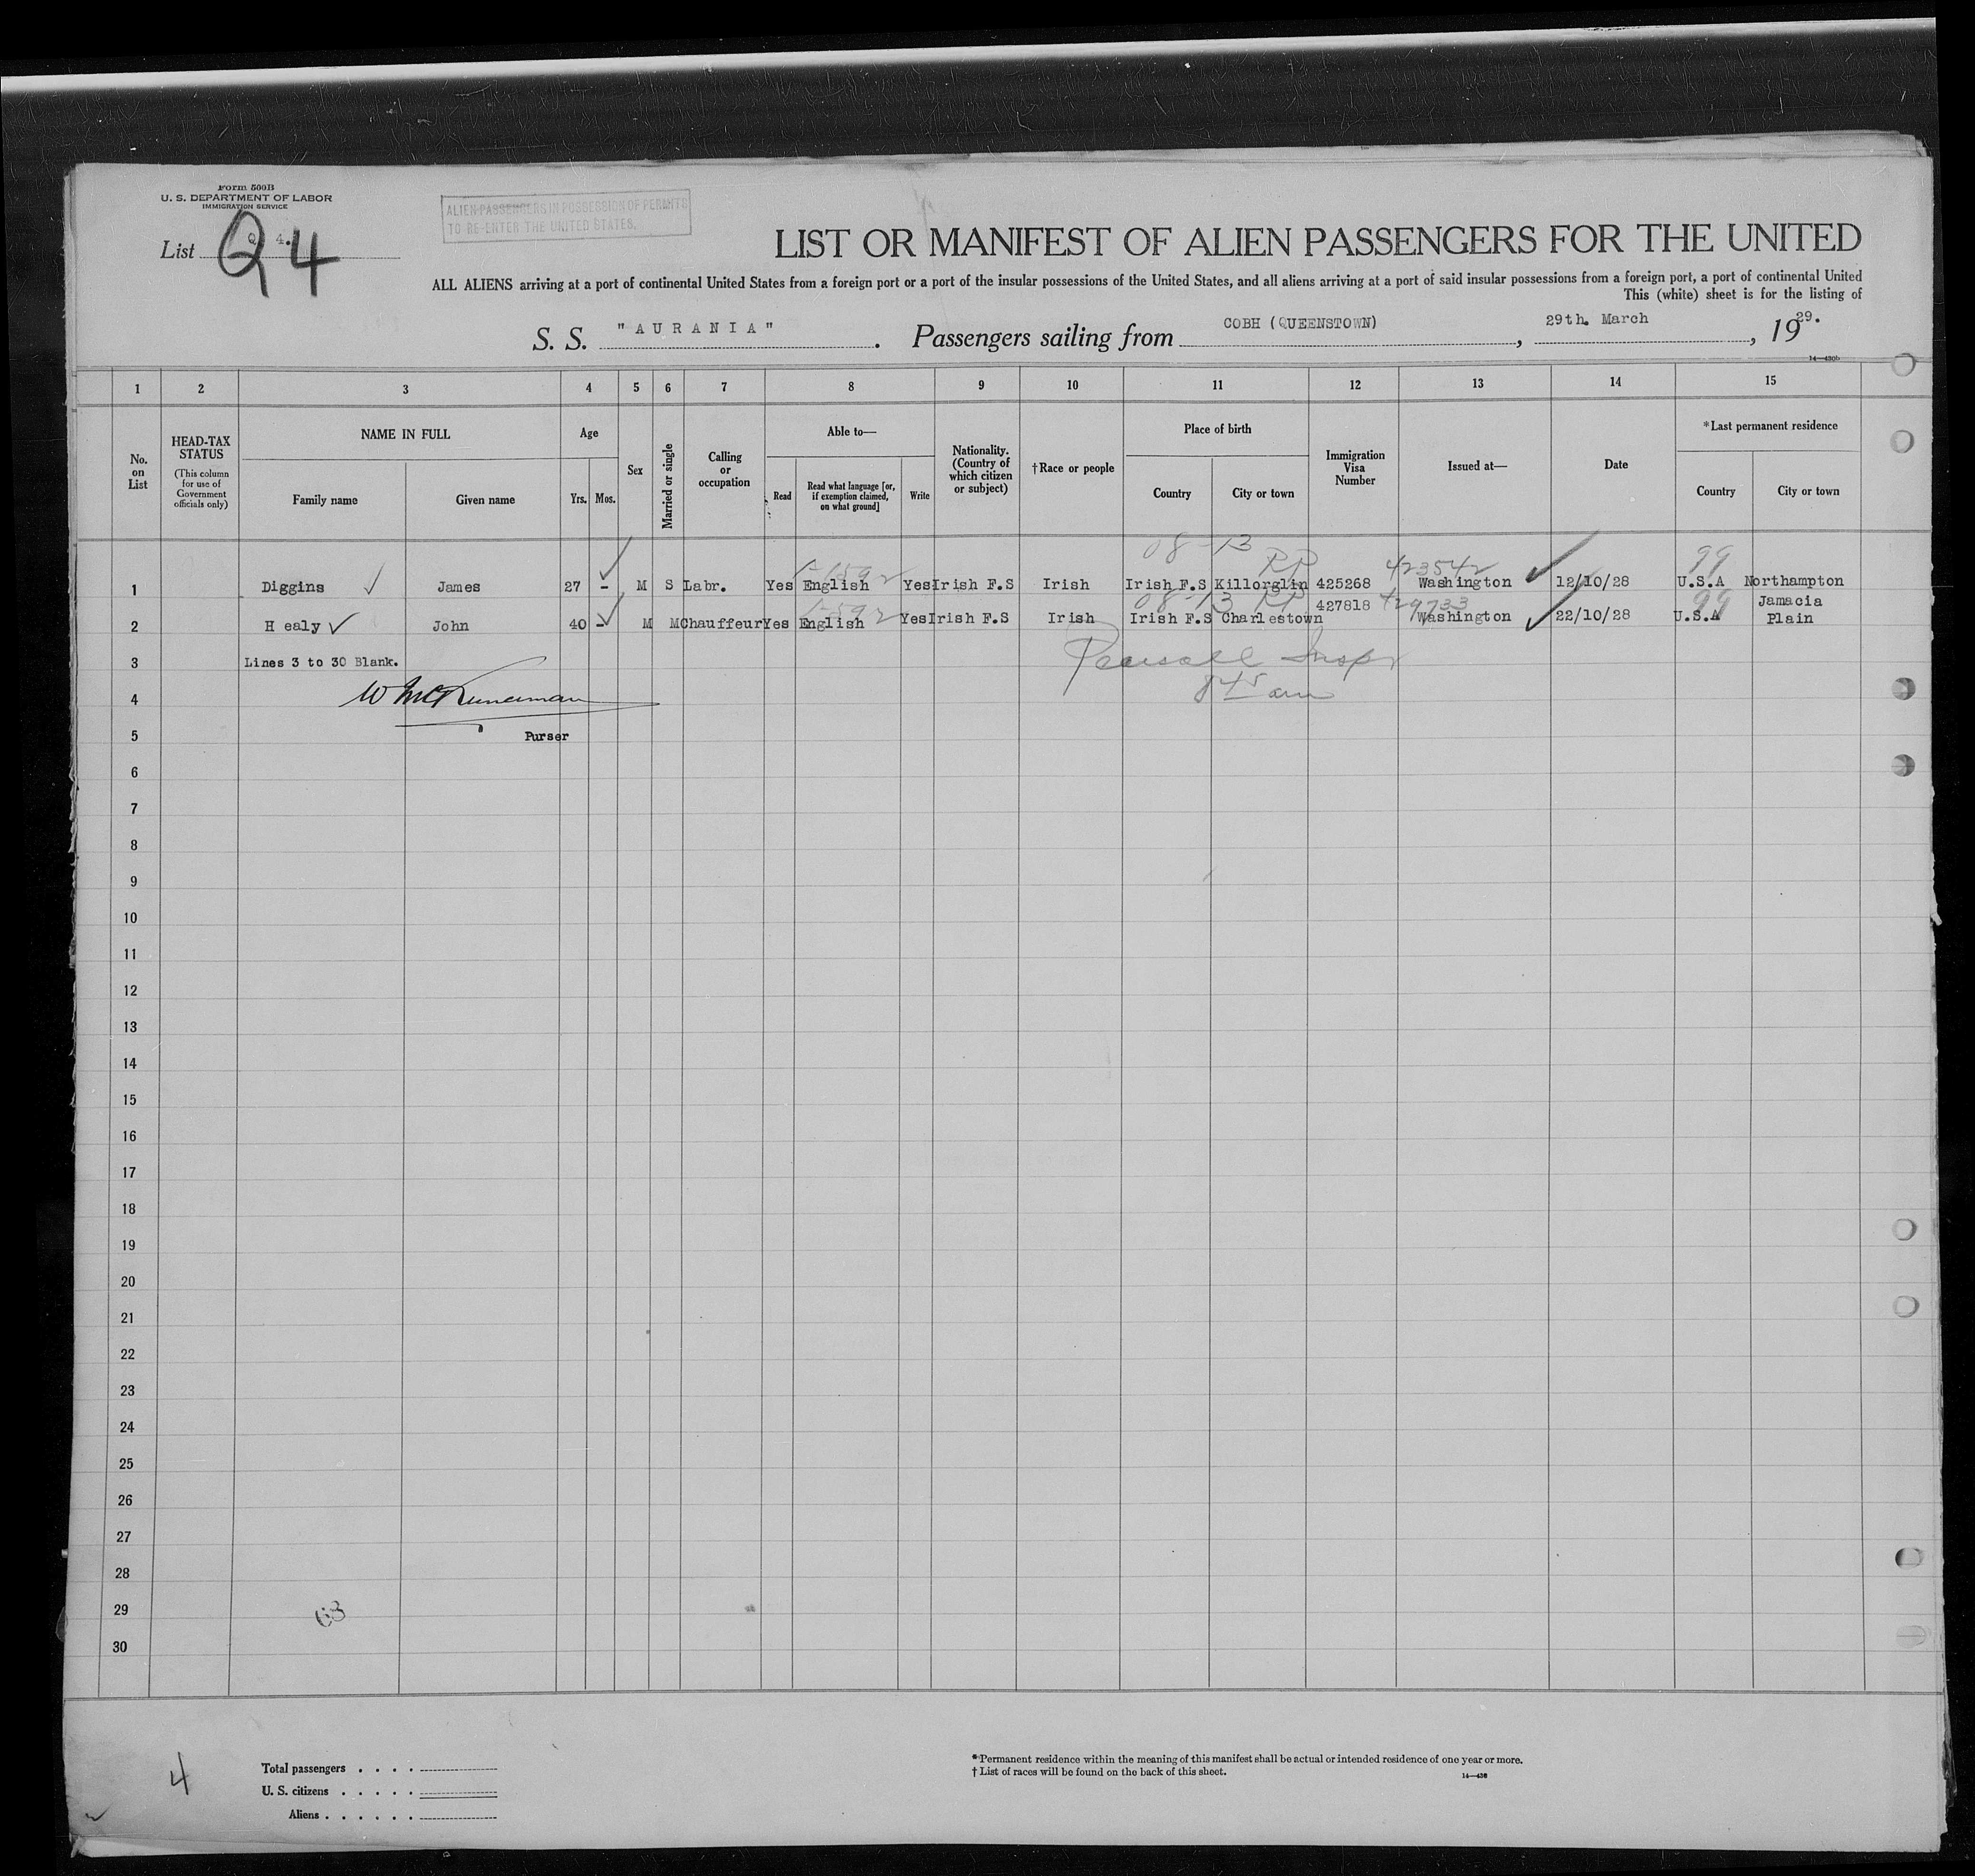 Form 500B
U. S. DEPARTMENT OF LABOR
IMMIGRATION SERVICE
ALIEN PASSENGERS IN POSSESSION OF PERMITS
TO RE-ENTER THE UNITED STATES.
List Q 4.
Q4
LIST OR MANIFEST OF ALIEN PASSENGERS FOR THE UNITED
ALL ALIENS arriving at a port of continental United States from a foreign port or a port of the insular possessions of the United States, and all aliens arriving at a port of said insular possessions from a foreign port, a port of continental United
This (white) sheet is for the listing of
S. S. "AURANIA". Passengers sailing from COBH (QUEENSTOWN), 29th. March, 1929.
14—430b
1 2 3 4 5 6 7 8 9 10 11 12 13 14 15
No. on List
HEAD-TAX STATUS
(This column for use of Government officials only)
NAME IN FULL
Family name
Given name
Age
Yrs.
Mos.
Sex
Married or single
Calling or occupation
Able to—
Read
Read what language [or, if exemption claimed, on what ground]
Write
Nationality. (Country of which citizen or subject)
†Race or people
Place of birth
Country
City or town
Immigration Visa Number
Issued at—
Date
*Last permanent residence
Country
City or town
08-13 RP 423542 99
1 Diggins James 27 - M S Labr. Yes English Yes Irish F.S Irish Irish F.S Killorglin 425268 Washington 12/10/28 U.S.A Northampton
08-13 RP 429733 99
2 H ealy John 40 - M M Chauffeur Yes English Yes Irish F.S Irish Irish F.S Charlestown 427818 Washington 22/10/28 U.S.A Jamacia Plain
3 Lines 3 to 30 Blank.
Insp
4
845 am
5 Purser
6
7
8
9
10
11
12
13
14
15
16
17
18
19
20
21
22
23
24
25
26
27
28
29
30
63
4
Total passengers . . . .
U. S. citizens . . . . .
Aliens . . . . . .
*Permanent residence within the meaning of this manifest shall be actual or intended residence of one year or more.
† List of races will be found on the back of this sheet.